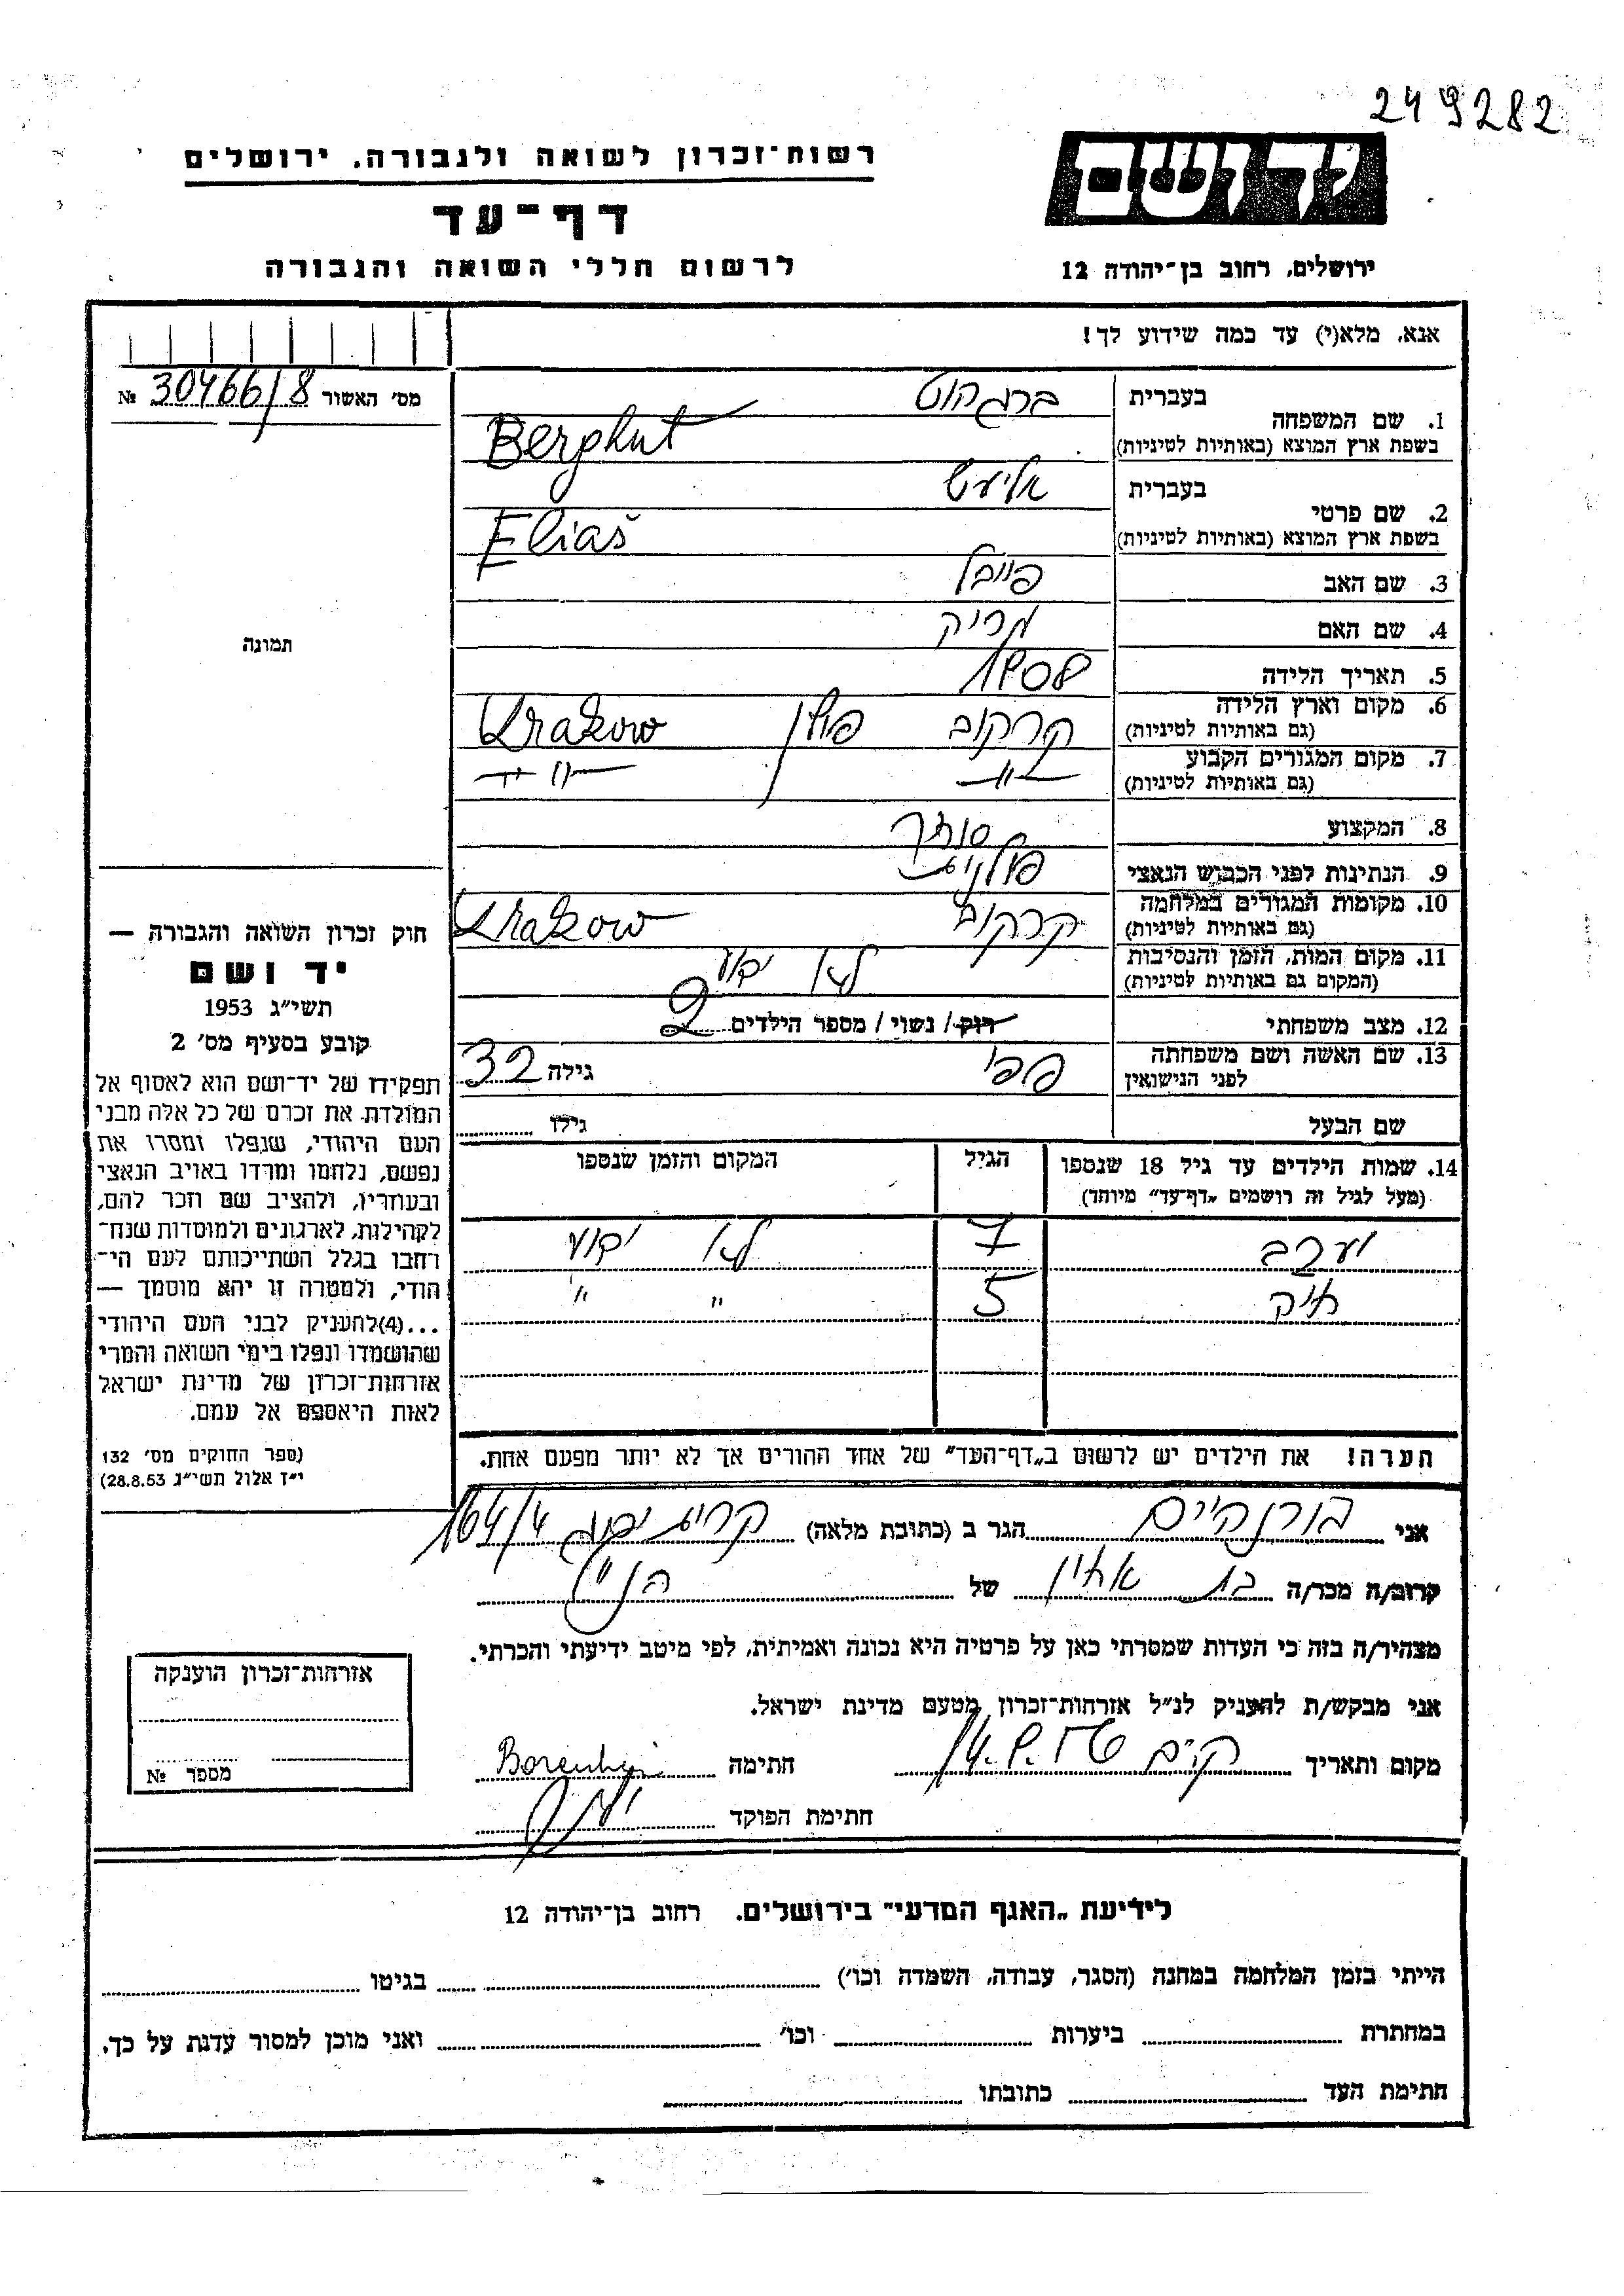 249282
יד ושם
רשות־זכרון לשואה ולגבורה. ירושלים
דף־עד
לרשום חללי השואה והגבורה
ירושלים, רחוב בן־יהודה 12
אנא, מלא(י) עד כמה שידוע לך!
מס' האשור 30466/8 №
תמונה
1. שם המשפחה
בעברית ברגהוט
בשפת ארץ המוצא (באותיות לטיניות) Berghut
2. שם פרטי
בעברית אליעש
בשפת ארץ המוצא (באותיות לטיניות) Eliaš
3. שם האב פייבל
4. שם האם
5. תאריך הלידה 1908
6. מקום וארץ הלידה קרקוב פולין Krakow
(גם באותיות לטיניות)
7. מקום המגורים הקבוע —"— —"—
(גם באותיות לטיניות)
8. המקצוע סוחר
9. הנתינות לפני הכבוש הנאצי פולנית
10. מקומות המגורים במלחמה קרקוב Krakow
(גם באותיות לטיניות)
11. מקום המות, הזמן והנסיבות לא ידוע
(המקום גם באותיות לטיניות)
12. מצב משפחתי רוק/ נשוי / מספר הילדים 2
13. שם האשה ושם משפחתה פפי גילה 32
לפני הנישואין
שם הבעל גילו
14. שמות הילדים עד גיל 18 שנספו הגיל המקום והזמן שנספו
(מעל לגיל זה רושמים „דף־עד" מיוחד)
7 לא ידוע
5 " "
הערה! את הילדים יש לרשום ב„דף־העד" של אחד ההורים אך לא יותר מפעם אחת.
חוק זכרון השואה והגבורה —
יד ושם
תשי"ג 1953
קובע בסעיף מס' 2
תפקידו של יד־ושם הוא לאסוף אל
המולדת את זכרם של כל אלה מבני
העם היהודי, שנפלו ומסרו את
נפשם, נלחמו ומרדו באויב הנאצי
ובעוזריו, ולהציב שם וזכר להם,
לקהילות, לארגונים ולמוסדות שנח־
רחבו בגלל השתייכותם לעם הי־
הודי, ולמטרה זו יהא מוסמך —
...(4)להעניק לבני העם היהודי
שהושמדו ונפלו בימי השואה והמרי
אזרחות־זכרון של מדינת ישראל
לאות היאספם אל עמם.
(ספר החוקים מס' 132
י"ז אלול תשי"ג 28.8.53)
אני בורנהיים הגר ב (כתובת מלאה) 164/4
קרוב/ה מכר/ה בת אחין של הנ"ל
מצהיר/ה בזה כי העדות שמסרתי כאן על פרטיה היא נכונה ואמיתית, לפי מיטב ידיעתי והכרתי.
אני מבקש/ת להעניק לנ"ל אזרחות־זכרון מטעם מדינת ישראל.
מקום ותאריך 14.9. חתימה
חתימת הפוקד
אזרחות־זכרון הוענקה
מספר №
לידיעת „האגף המדעי" בירושלים. רחוב בן־יהודה 12
הייתי בזמן המלחמה במחנה (הסגר, עבודה, השמדה וכו') בגיטו
במחתרת ביערות וכו' ואני מוכן למסור עדות על כך.
חתימת העד כתובתו